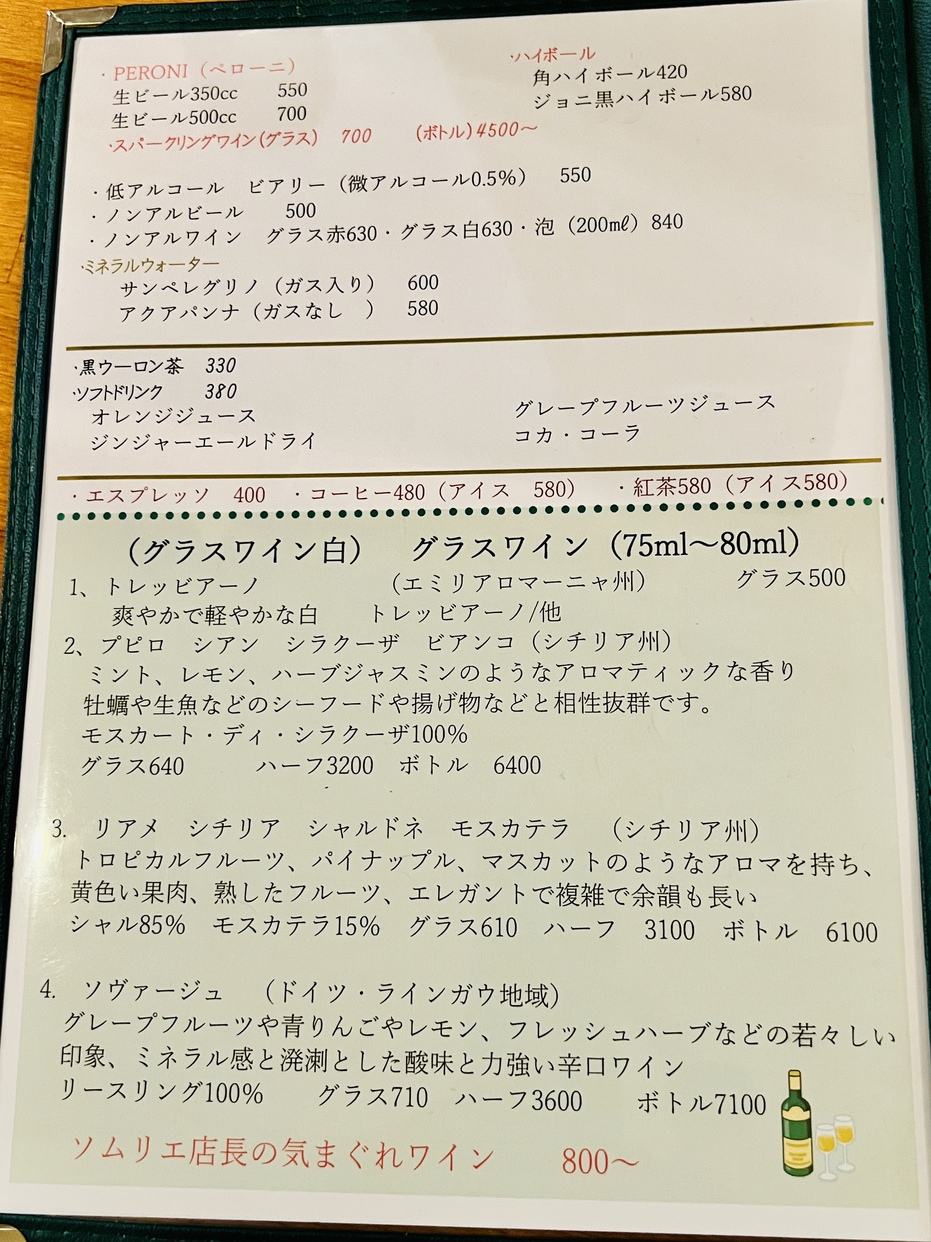 ・PERONI（ペローニ）
生ビール350cc　550
生ビール500cc　700
・ハイボール
角ハイボール420
ジョニ黒ハイボール580
・スパークリングワイン(グラス)　700　(ボトル)4500～
・低アルコール　ビアリー（微アルコール0.5%）　550
・ノンアルビール　500
・ノンアルワイン　グラス赤630・グラス白630・泡（200㎖）840
・ミネラルウォーター
サンペレグリノ（ガス入り）　600
アクアパンナ（ガスなし　）　580
・黒ウーロン茶　330
・ソフトドリンク　380
オレンジジュース　グレープフルーツジュース
ジンジャーエールドライ　コカ・コーラ
・エスプレッソ　400　・コーヒー480（アイス　580）　・紅茶580（アイス580）
（グラスワイン白）　グラスワイン（75ml～80ml）
1、トレッビアーノ　（エミリアロマーニャ州）　グラス500
爽やかで軽やかな白　トレッビアーノ/他
2、プピロ　シアン　シラクーザ　ビアンコ（シチリア州）
ミント、レモン、ハーブジャスミンのようなアロマティックな香り
牡蠣や生魚などのシーフードや揚げ物などと相性抜群です。
モスカート・ディ・シラクーザ100%
グラス640　ハーフ3200　ボトル　6400
3.　リアメ　シチリア　シャルドネ　モスカテラ　（シチリア州）
トロピカルフルーツ、パイナップル、マスカットのようなアロマを持ち、
黄色い果肉、熟したフルーツ、エレガントで複雑で余韻も長い
シャル85%　モスカテラ15%　グラス610　ハーフ　3100　ボトル　6100
4.　ソヴァージュ　（ドイツ・ラインガウ地域）
グレープフルーツや青りんごやレモン、フレッシュハーブなどの若々しい
印象、ミネラル感と溌溂とした酸味と力強い辛口ワイン
リースリング100%　グラス710　ハーフ3600　ボトル7100
ソムリエ店長の気まぐれワイン　800～